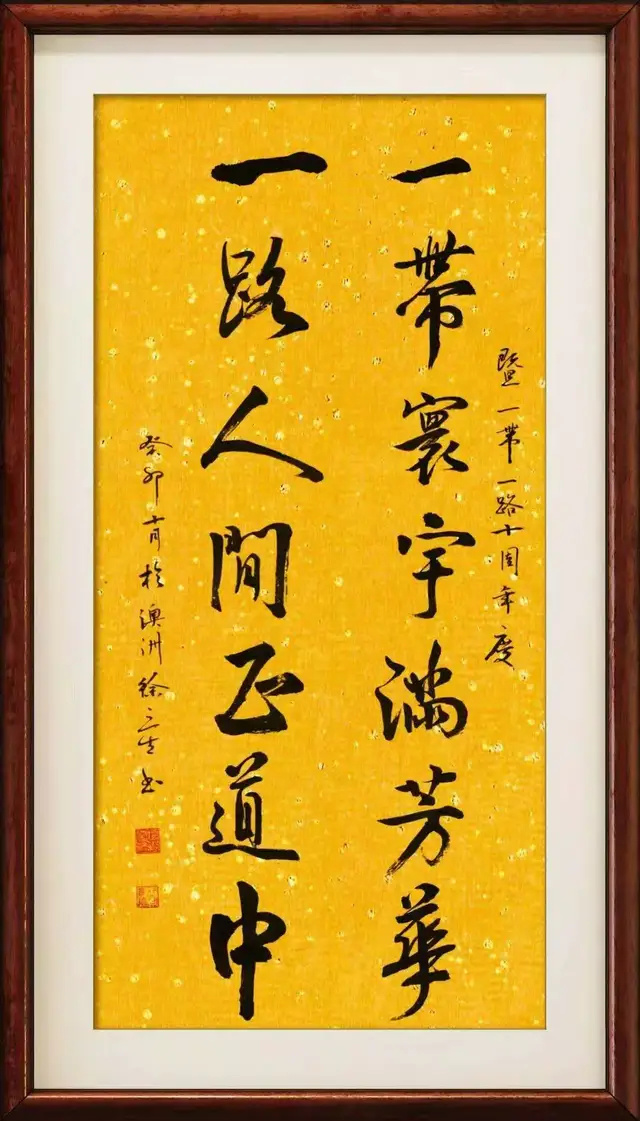 暨一帶一路十周年度
一帶寰宇滿芳華
一路人間正道中
癸卯十月於澳洲徐三生書